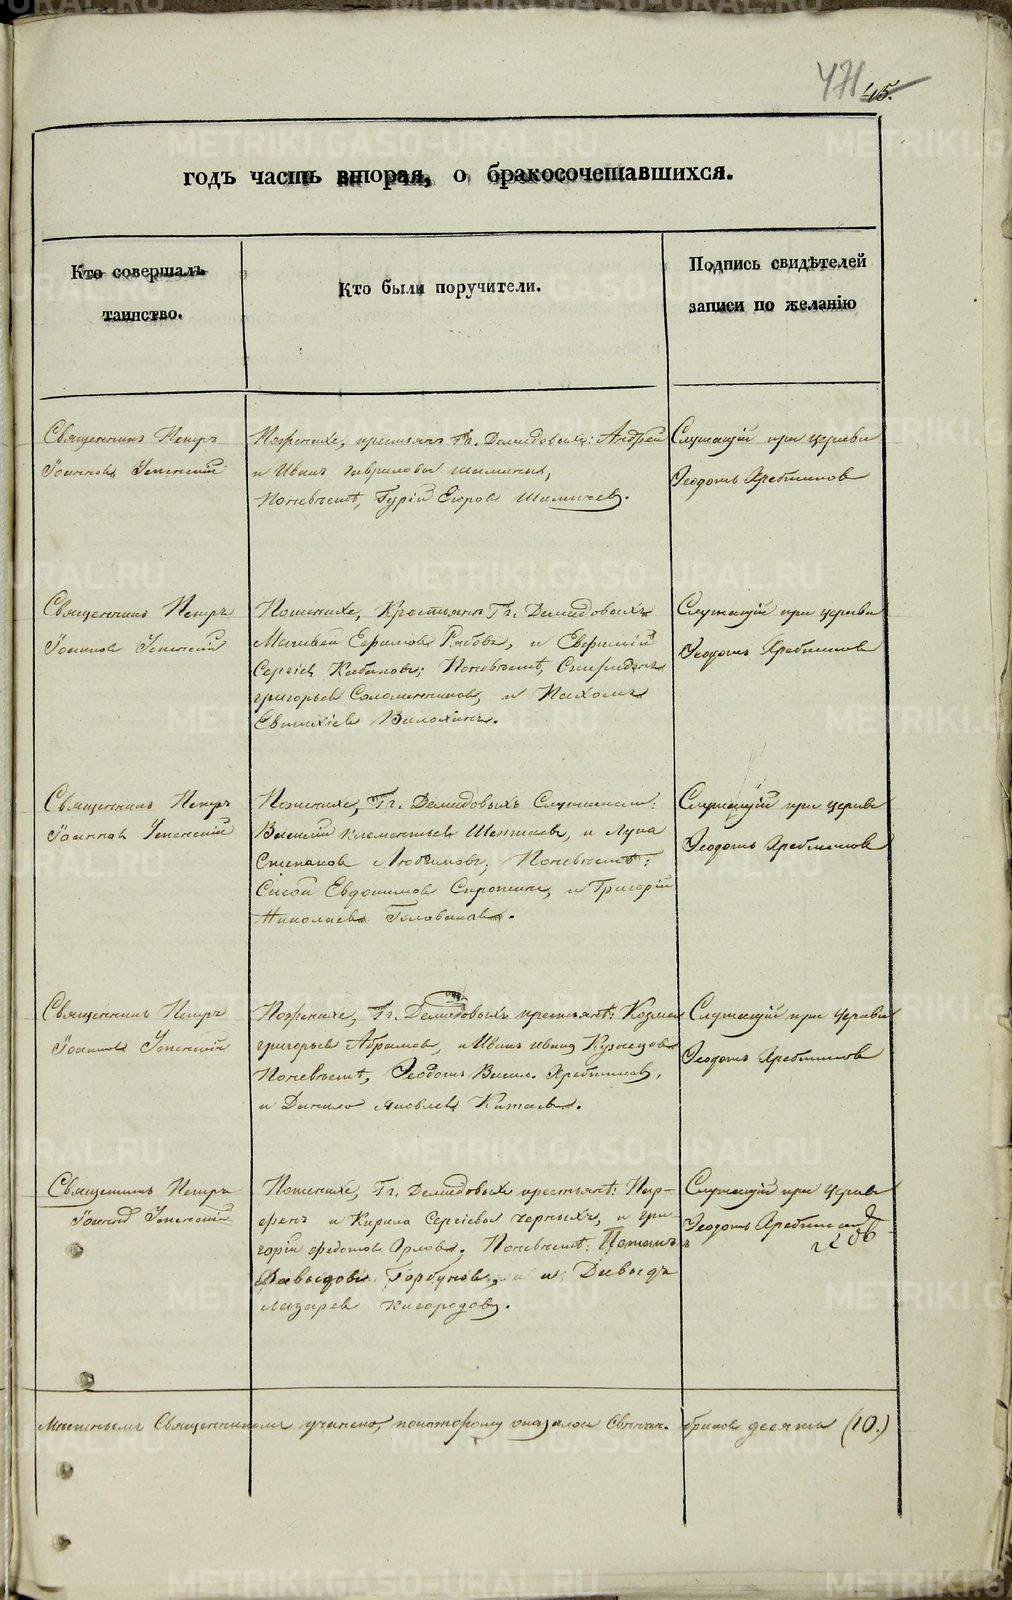 471 45.
годъ часть вторая, о бракосочетавшихся.
Кто совершалъ
таинство.
Кто были поручители.
Подпись свидѣтелей
записи по желанію
Священникъ Петръ
Іоанновъ Успенскій
Поженихе, крестьяне Гг. Демидовыхъ: Андрей
и Иванъ Гавриловы
Поневѣстѣ, Гурій Егоровъ
Служащій при церкви
Ѳеодотъ Хребтиковъ
Священникъ Петръ
Іоанновъ Успенскій
Поженихе, Крестьяне Гг. Демидовыхъ
Матвѣй Ефимовъ Рябовъ, и Евфимій
Сергіевъ Кабановъ; Поневѣстѣ, Спиридонъ
Григорьевъ Соломенниковъ, и Пахомъ
Евтихіевъ
Служащій при церкви
Ѳеодотъ Хребтиковъ
Священникъ Петръ
Іоанновъ Успенскій
Поженихе, Гг. Демидовыхъ
Василій Клементьевъ и Лука
Степановъ Любимовъ; Поневѣстѣ:
Евдокимовъ и Григорій
Николаевъ Головановъ.
Служащій при церкви
Ѳеодотъ Хребтиковъ
Священникъ Петръ
Іоанновъ Успенскій
Поженихе, Гг. Демидовыхъ крестьянѣ: Козма
Григорьевъ Абрамовъ, и Иванъ Кузнецовъ
Поневѣстѣ, Ѳеодотъ Васил. Хребтиковъ,
и Данило Яковлевъ Китаевъ.
Служащій при церкви
Ѳеодотъ Хребтиковъ
Священникъ Петръ
Іоанновъ Успенскій
Поженихе, Гг. Демидовыхъ крестьянѣ: Пар-
фенъ и Кирила Сергіевы Черныхъ, и Гри
горій Федотовъ Орловъ. Поневѣстѣ: Потапъ
Давыдовъ Горбуновъ, и Давыдъ
Лазаревъ
Служащій при церкви
Ѳеодотъ
Мѣстнымъ Священникомъ учинено, покоторому оказалось браковъ десять (10.)
METRIKI.GASO-URAL.RU